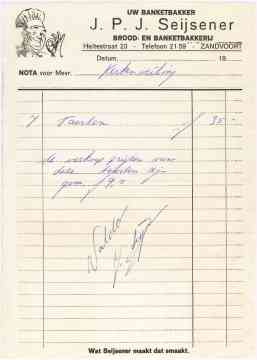 UW BANKETBAKKER
J. P. J. Seijsener
BROOD- EN BANKETBAKKERIJ
Heltestraat 20 - Telefoon 2159 - ZANDVOORT
Datum, 19
NOTA voor Mevr. Kerkenveiling
7 Taarten 35 -
de verkoop prijzen van
deze taarten zijn
Voldo
Wat Seijsener maakt dat smaakt.